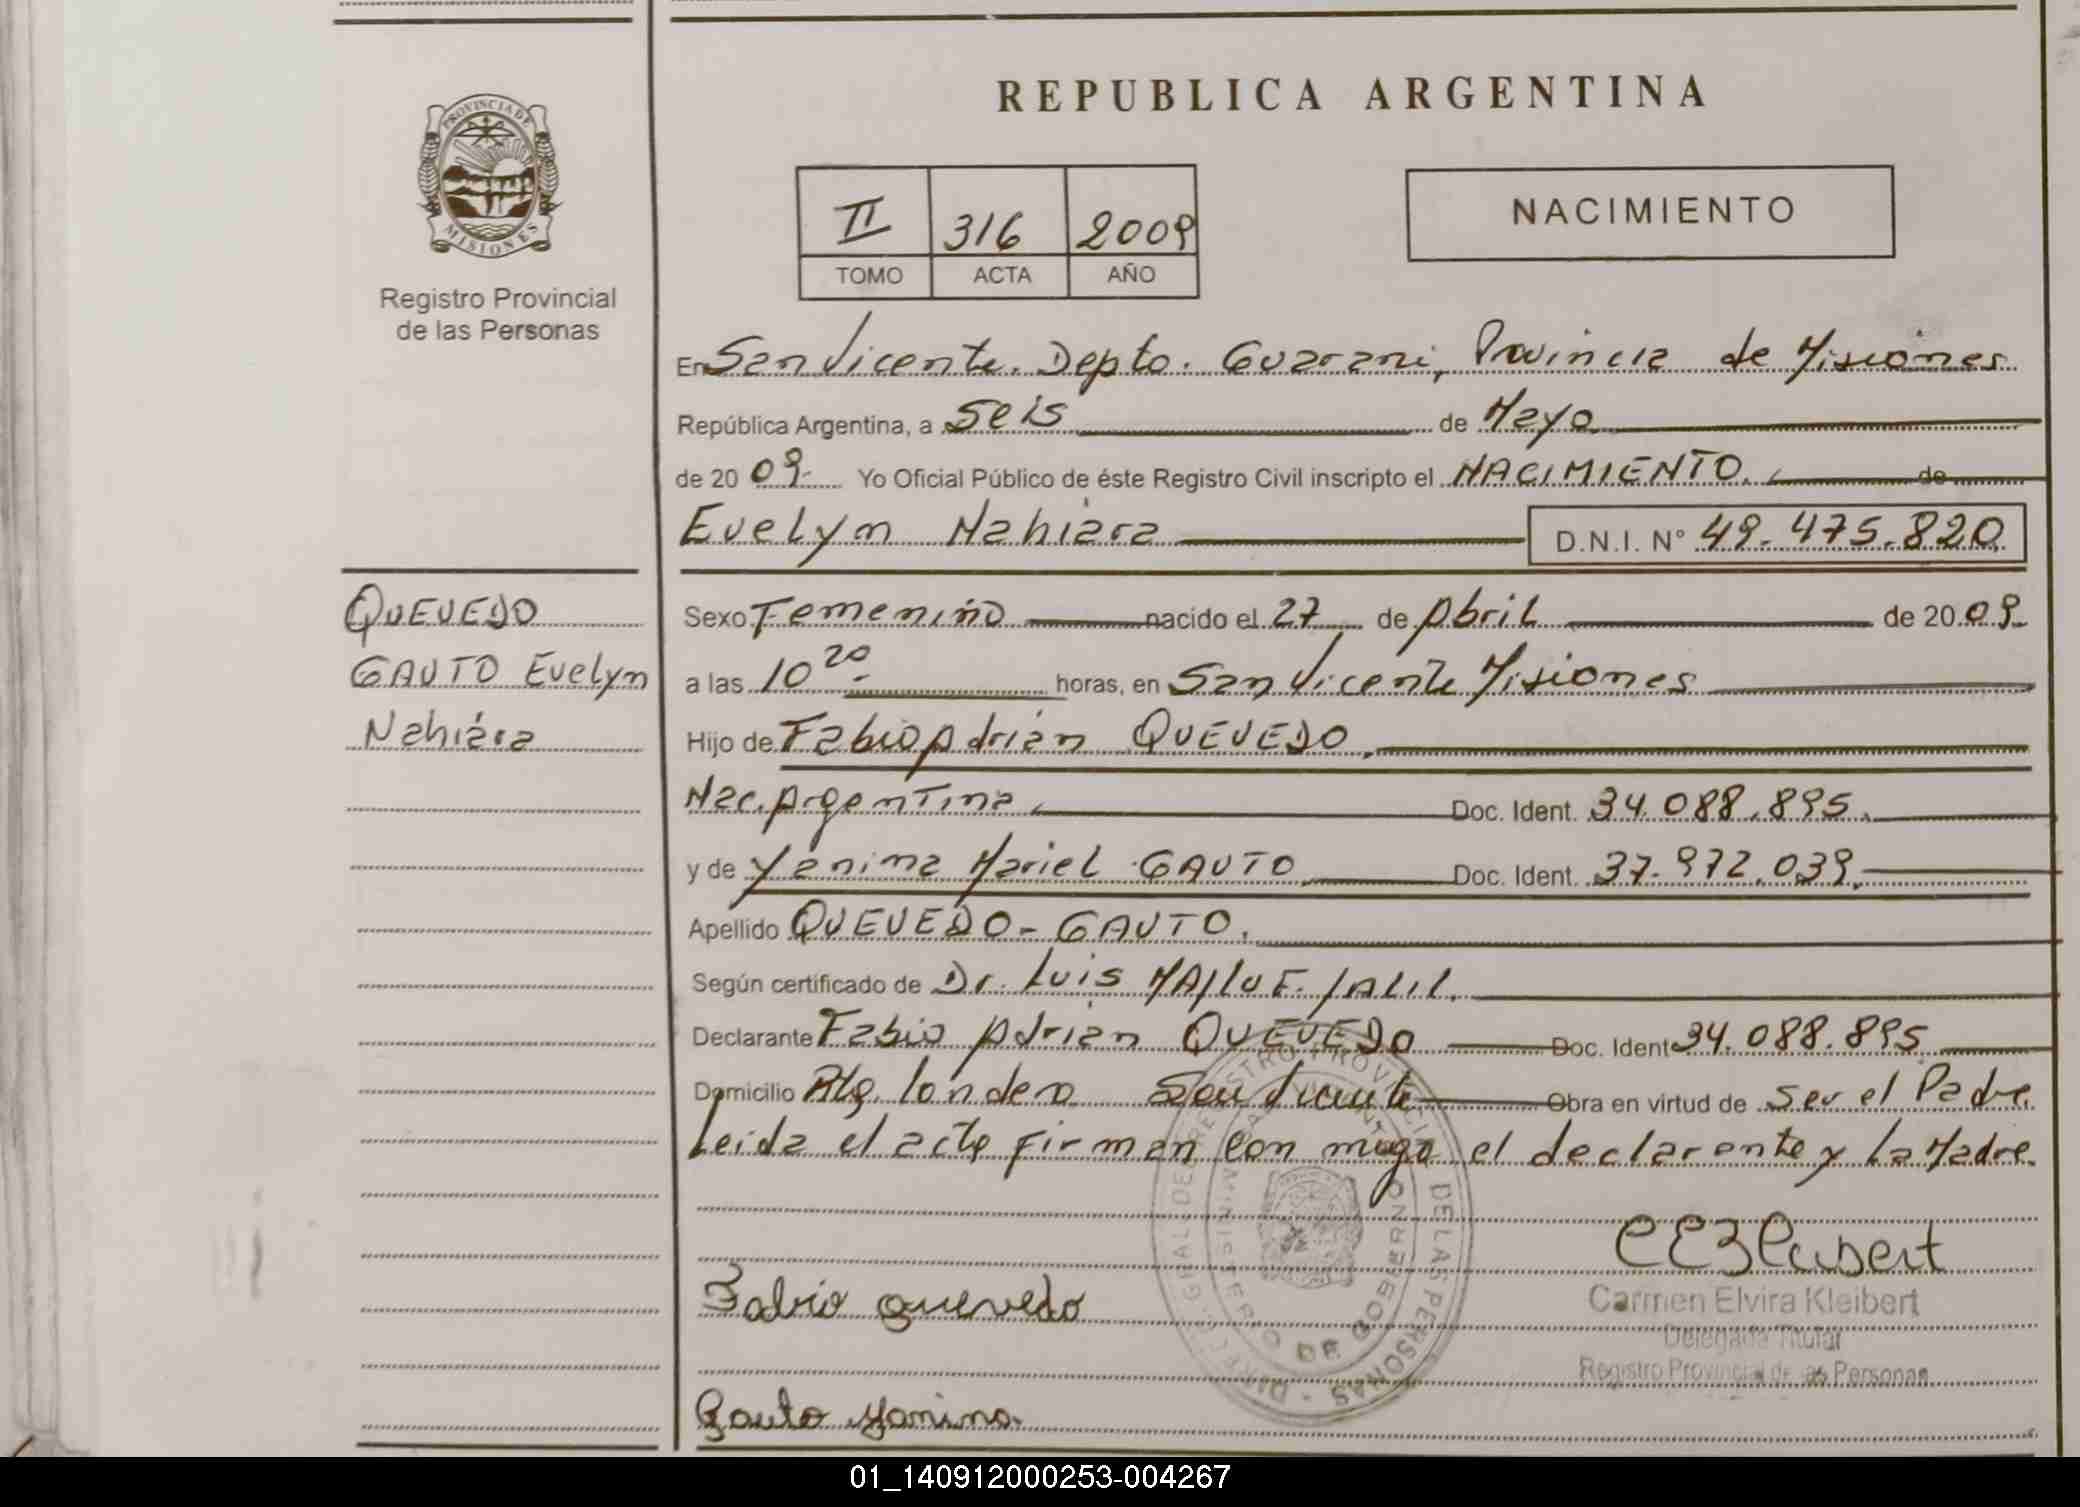 PROVINCIA DE
MISIONES
Registro Provincial
de las Personas
QUEVEDO
GAUTO Evelyn
Nahiara
REPUBLICA ARGENTINA
II 316 2009
TOMO ACTA AÑO
NACIMIENTO
En San Vicente. Depto. Guarani, Provincia de Misiones
República Argentina, a Seis de Mayo
de 20 09. Yo Oficial Público de éste Registro Civil inscripto el NACIMIENTO. de
Evelyn Nahiara D.N.I. N° 49.475.820
Sexo Femenino nacido el 27 de Abril de 20 09.
a las 10 20. horas, en San Vicente Misiones
Hijo de Fabio Adrián QUEVEDO.
Nac. Argentina. Doc. Ident. 34.088.895.
y de Yanina Mariel GAUTO Doc. Ident. 37.972.039.
Apellido QUEVEDO-GAUTO.
Según certificado de Dr. Luis
Declarante Fabio Adrian QUEVEDO Doc. Ident 34.088.895
Domicilio San Vicente Obra en virtud de ser el Padre.
Leida el acta firman con migo el declarante y la Madre.
Fabio Quevedo
Gauto Yanina.
Carmen Elvira Kleibert
Delegada Titular
Registro Provincial de las Personas
01_140912000253-004267